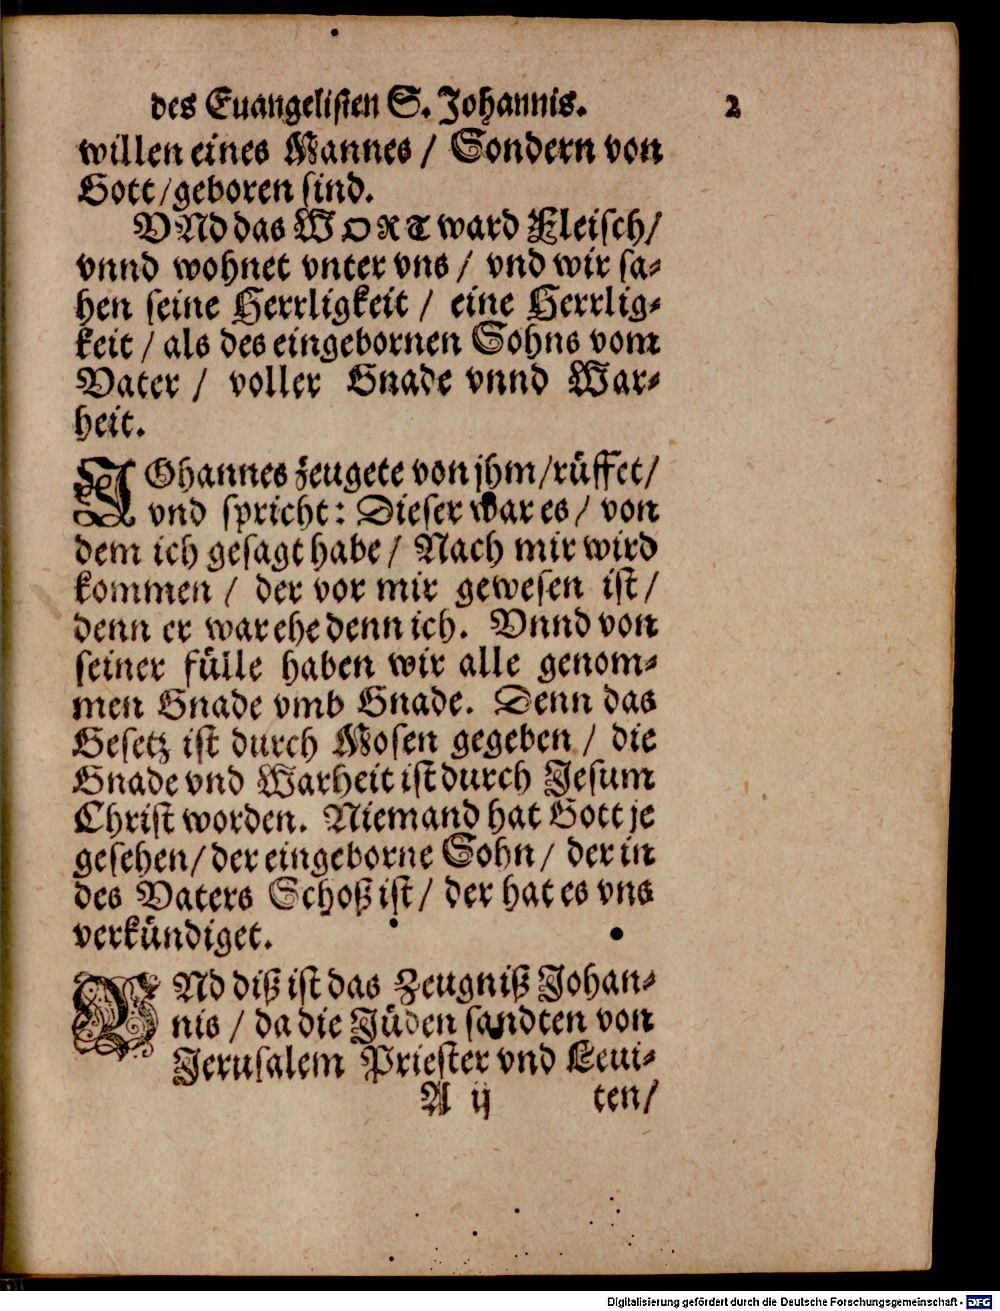 des Euangelisten S. Johannis. 2
willen eines Mannes / Sondern von
Gott / geboren sind.
VNd das WORT ward Fleisch /
vnnd wohnet vnter vns / vnd wir sa-
hen seine Herrligkeit / eine Herrlig-
keit / als des eingebornen Sohns vom
Vater / voller Gnade vnnd War-
heit.
JOhannes zeugete von jhm / rüffet /
vnd spricht: Dieser war es / von
dem ich gesagt habe / Nach mir wird
kommen / der vor mir gewesen ist /
denn er war ehe denn ich. Vnnd von
seiner fülle haben wir alle genom-
men Gnade vmb Gnade. Denn das
Gesetz ist durch Mosen gegeben / die
Gnade vnd Warheit ist durch Jesum
Christ worden. Niemand hat Gott je
gesehen / der eingeborne Sohn / der in
des Vaters Schoß ist / der hat es vns
verkündiget.
VNd diß ist das Zeugniß Johan-
nis / da die Jüden sandten von
Jerusalem Priester vnd Leui-
A ij ten /
Digitalisierung gefördert durch die Deutsche Forschungsgemeinschaft - DFG